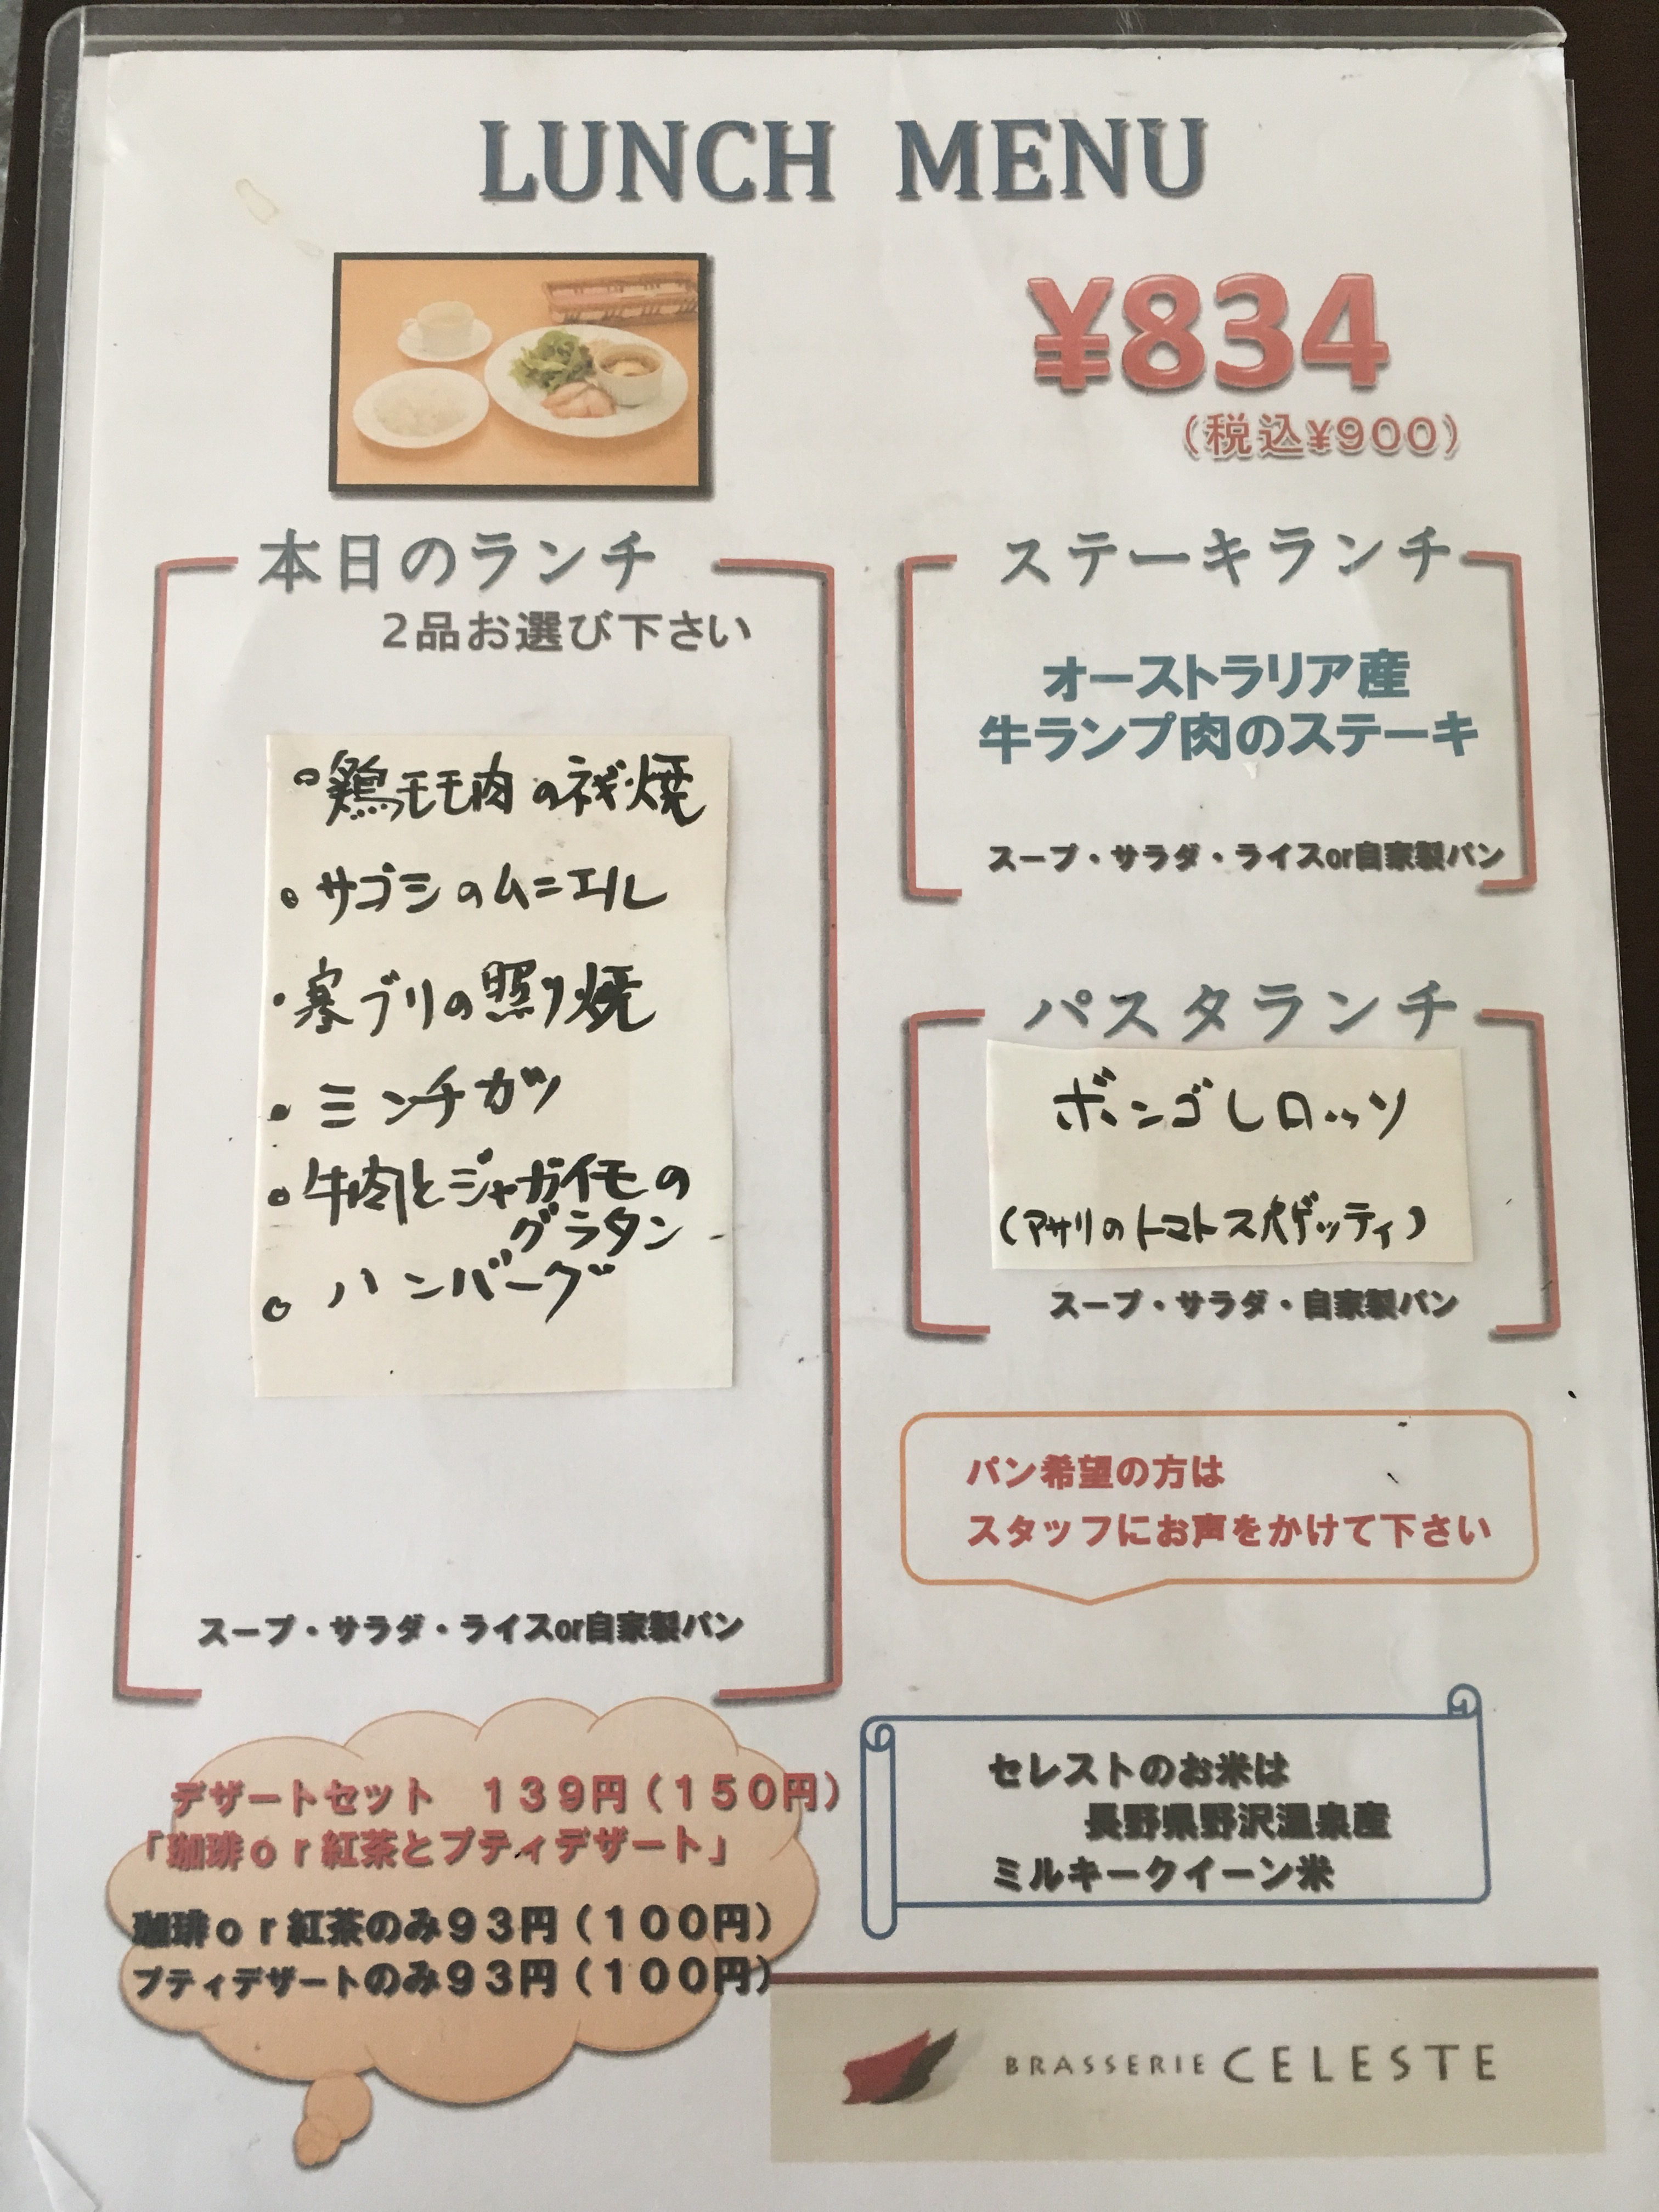 LUNCH MENU
¥834
（税込¥900）
本日のランチ
2品お選び下さい
・鶏モモ肉のネギ焼
・サゴシのムニエル
・寒ブリの照り焼
・ミンチカツ
・牛肉とジャガイモの
グラタン
・ハンバーグ
スープ・サラダ・ライスor自家製パン
ステーキランチ
オーストラリア産
牛ランプ肉のステーキ
スープ・サラダ・ライスor自家製パン
パスタランチ
ボンゴレロッソ
（アサリのトマトスパゲッティ）
スープ・サラダ・自家製パン
パン希望の方は
スタッフにお声をかけて下さい
デザートセット　１３９円（１５０円）
「珈琲ｏｒ紅茶とプティデザート」
珈琲ｏｒ紅茶のみ９３円（１００円）
プティデザートのみ９３円（１００円）
セレストのお米は
長野県野沢温泉産
ミルキークイーン米
BRASSERIE CELESTE